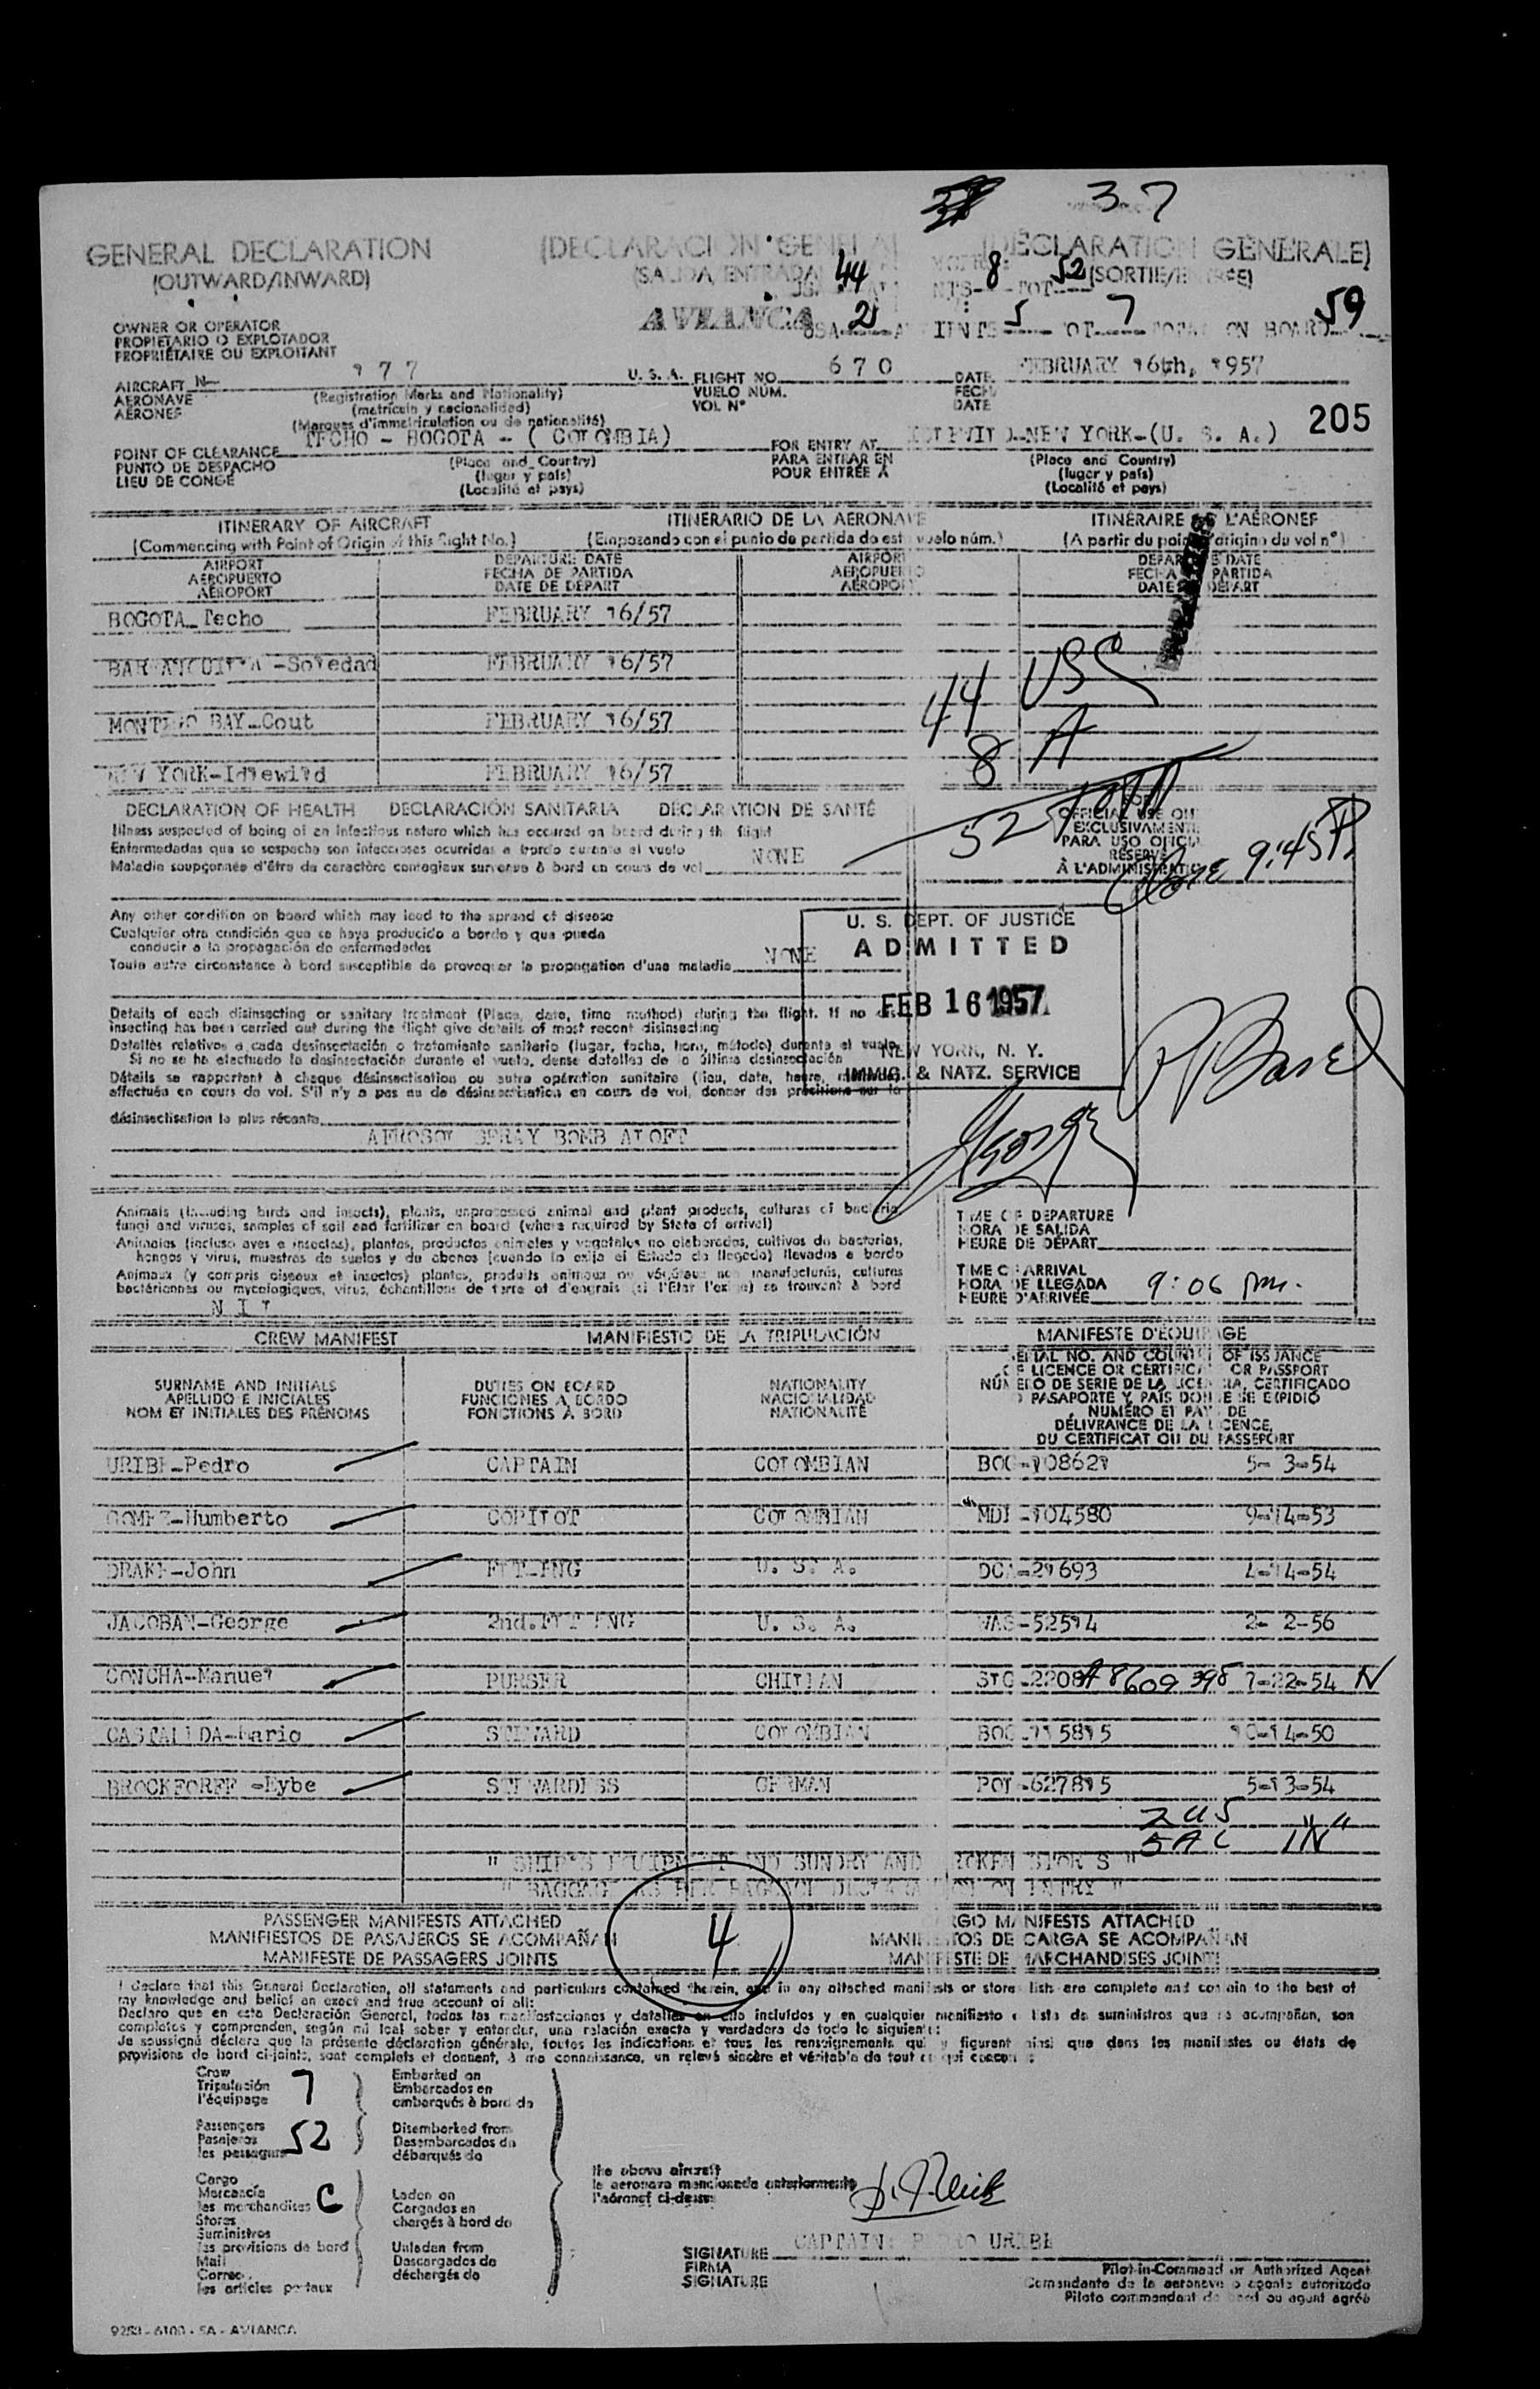 37
GENERAL DECLARATION (DECLARACION GENERAL (DÉCLARATION GÉNÉRALE)
(OUTWARD/INWARD) (SALIDA/ENTRADA 44 8 52 (SORTIE/ENTRÉE)
AVIANCA USA 2 5 7 TOTAL ON BOARD 59
OWNER OR OPERATOR
PROPIETARIO O EXPLOTADOR
PROPRIÉTAIRE OU EXPLOITANT
AIRCRAFT N- 177 U. S. A. FLIGHT NO. 670 DATE FEBRUARY 16th, 1957
AERONAVE (Registration Marks and Nationality) VUELO NÚM. FECHA
AÉRONEF (matrícula y nacionalidad) VOL Nº DATE
(Marques d'immatriculation ou de nationalité) 205
POINT OF CLEARANCE TECHO - BOGOTA - ( COLOMBIA) FOR ENTRY AT IDLEWILD-NEW YORK-(U. S. A.)
PUNTO DE DESPACHO (Place and Country) PARA ENTRAR EN (Place and Country)
LIEU DE CONGÉ (lugar y país) POUR ENTRÉE À (lugar y país)
(Localité et pays) (Localité et pays)
ITINERARY OF AIRCRAFT ITINERARIO DE LA AERONAVE ITINÉRAIRE DE L'AÉRONEF
(Commencing with Point of Origin of this flight No.) (Empezando con el punto de partida de este vuelo núm.) (A partir du point d'origine du vol nº)
AIRPORT DEPARTURE DATE AIRPORT DEPARTURE DATE
AEROPUERTO FECHA DE PARTIDA AEROPUERTO FECHA DE PARTIDA
AÉROPORT DATE DE DÉPART AÉROPORT DATE DE DÉPART
BOGOTA-Techo FEBRUARY 16/57
BARRANQUILLA-Soledad FEBRUARY 16/57
44 USC
MONTEGO BAY-Cout FEBRUARY 16/57
8 A
NEW YORK-Idlewild FEBRUARY 16/57
52
DECLARATION OF HEALTH DECLARACIÓN SANITARIA DÉCLARATION DE SANTÉ
Illness suspected of being of an infectious nature which has occured on board during the flight
Enfermedades que se sospecha son infecciosas ocurridas a bordo durante el vuelo
Maladie soupçonnée d'être de caractère contagieux survenue à bord en cours de vol NONE
FOR
OFFICIAL USE ONLY
EXCLUSIVAMENTE
PARA USO OFICIAL
RÉSERVÉ
À L'ADMINISTRATION
9:45 P.
Any other condition on board which may lead to the spread of disease
Cualquier otra condición que se haya producido a bordo y que pueda
conducir a la propagación de enfermedades
Toute autre circonstance à bord susceptible de provoquer la propagation d'une maladie NONE
U. S. DEPT. OF JUSTICE
ADMITTED
FEB 16 1957
NEW YORK, N. Y.
IMMIG. & NATZ. SERVICE
Details of each disinsecting or sanitary treatment (Place, date, time method) during the flight. If no dis-
insecting has been carried out during the flight give details of most recent disinsecting
Detalles relativos a cada desinsectación o tratamiento sanitario (lugar, fecha, hora, método) durante el vuelo
Si no se ha efectuado la desinsectación durante el vuelo, dense detalles de la última desinsectación
Détails se rapportant à chaque désinsectisation ou autre opération sanitaire (lieu, date, heure, méthode)
effectuée en cours de vol. S'il n'y a pas eu de désinsectisation en cours de vol, donner des précisions sur la
désinsectisation la plus récente
AEROSOL SPRAY BOMB ALOFT
Animals (including birds and insects), plants, unprocessed animal and plant products, cultures of bacteria,
fungi and viruses, samples of soil and fertilizer on board (where required by State of arrival)
Animales (incluso aves e insectos), plantas, productos animales y vegetales no elaborados, cultivos de bacterias,
hongos y virus, muestras de suelos y de abonos (cuando lo exija el Estado de llegada) llevados a bordo
Animaux (y compris oiseaux et insectes) plantes, produits animaux ou végétaux non manufacturés, cultures
bactériennes ou mycologiques, virus, échantillons de terre et d'engrais (si l'État l'exige) se trouvant à bord
NIL
TIME OF DEPARTURE
HORA DE SALIDA
HEURE DE DÉPART
TIME OF ARRIVAL
HORA DE LLEGADA
HEURE D'ARRIVÉE 9:06 pm.
CREW MANIFEST MANIFIESTO DE LA TRIPULACIÓN MANIFESTE D'ÉQUIPAGE
SURNAME AND INITIALS DUTIES ON BOARD NATIONALITY SERIAL NO. AND COUNTRY OF ISSUANCE
APELLIDO E INICIALES FUNCIONES A BORDO NACIONALIDAD OF LICENCE OR CERTIFICATE OR PASSPORT
NOM ET INITIALES DES PRÉNOMS FONCTIONS À BORD NATIONALITÉ NÚMERO DE SERIE DE LA LICENCIA, CERTIFICADO
O PASAPORTE Y PAÍS DONDE SE EXPIDIÓ
NUMÉRO ET PAYS DE
DÉLIVRANCE DE LA LICENCE,
DU CERTIFICAT OU DU PASSEPORT
URIBE-Pedro CAPTAIN COLOMBIAN BOG-108621 5- 3-54
GOMEZ-Humberto COPILOT COLOMBIAN MDL-104580 9-14-53
DRAKE-John FLT-ENG U. S. A. DCA-21693 4-14-54
JACOBAN-George 2nd.FLT ENG U. S. A. WAS-52514 2- 2-56
CONCHA-Manuel PURSER CHILIAN STG-2208 A8609398 7-22-54 N
CASTAÑEDA-Mario STEWARD COLOMBIAN BOG-115815 10-14-50
BROCKFORFF -Eybe STEWARDESS GERMAN POL-627815 5-13-54
2 US
5 A C 1"N"
" SHIP'S EQUIPMENT AND SUNDRY AND BROKEN STORES "
" BAGGAGE AS PER BAGGAGE DECLARATION ON ENTRY "
PASSENGER MANIFESTS ATTACHED CARGO MANIFESTS ATTACHED
MANIFIESTOS DE PASAJEROS SE ACOMPAÑAN 4 MANIFIESTOS DE CARGA SE ACOMPAÑAN
MANIFESTE DE PASSAGERS JOINTS MANIFESTE DE MARCHANDISES JOINTS
I declare that this General Declaration, all statements and particulars contained therein, and in any attached manifests or stores lists are complete and contain to the best of
my knowledge and belief an exact and true account of all:
Declaro que en esta Declaración General, todas las manifestaciones y detalles en ella incluídos y en cualquier manifiesto o lista de suministros que se acompañan, son
completos y comprenden, según mi leal saber y entender, una relación exacta y verdadera de todo lo siguiente:
Je soussigné déclare que la présente déclaration générale, toutes les indications et tous les renseignements qui y figurent ainsi que dans les manifestes ou états de
provisions de bord ci-joints, sont complets et donnent, à ma connaissance, un relevé sincère et véritable de tout ce qui concerne:
Crew Embarked on
Tripulación 7 Embarcados en
l'équipage embarqués à bord de
Passengers Disembarked from
Pasajeros 52 Desembarcados de
les passagers débarqués de
Cargo
Mercancía Laden on
les merchandises C Cargados en
Stores chargés à bord de
Suministros
les provisions de bord Unladen from
Mail Descargados de
Correo déchargés de
les articles postaux
the above aircraft
la aeronave mencionada anteriormente
l'aéronef ci-dessus
SIGNATURE CAPTAIN: PEDRO URIBE
FIRMA
SIGNATURE
Pilot-in-Command or Authorized Agent
Comandante de la aeronave o agente autorizado
Pilote commandant de bord ou agent agréé
9283 - 6100 - SA - AVIANCA